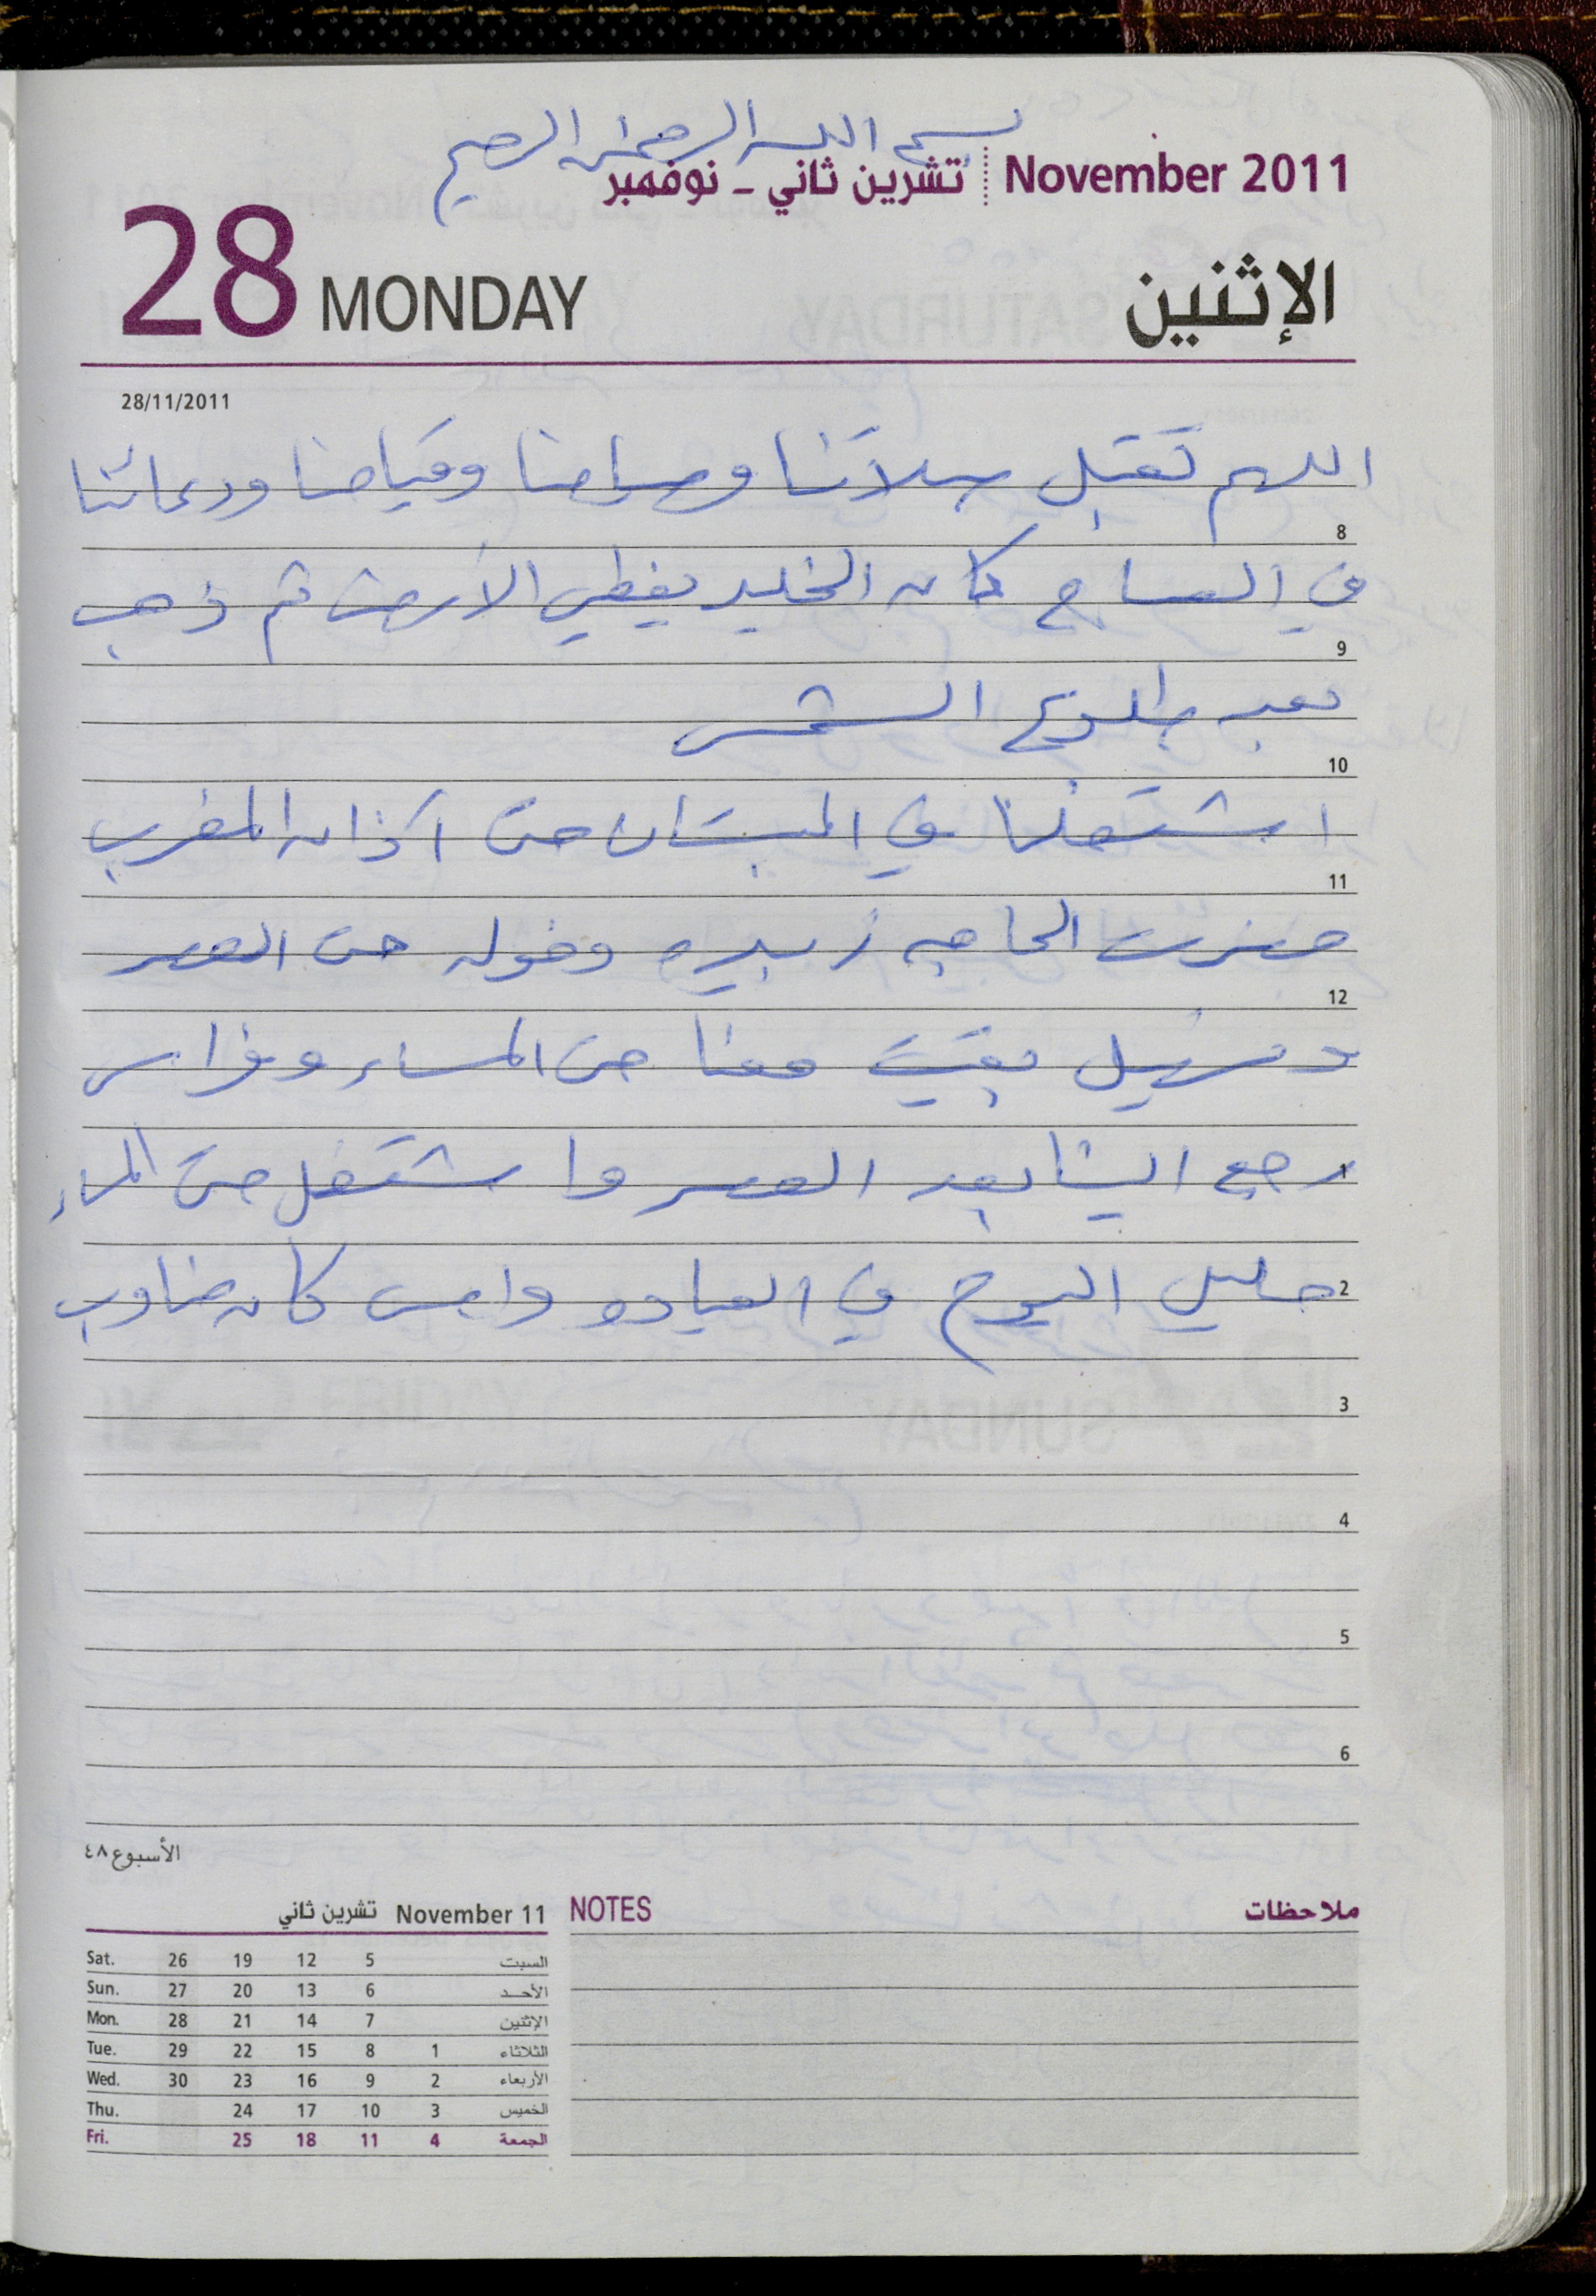 بسم الله الرحمن الرحيم
November 2011 تشرين ثاني - نوفمبر
28 MONDAY الإثنين
28/11/2011
اللهم تقبل صلاتنا وصيامنا وقيامنا ودعائنا
8
في الصباح كان الجليد يغطي الأرض ثم ذهب
9
بعد طلوع الشمس
10
اشتغلنا في البستان حتى آذان المغرب
11
حضرت الحاجه زبيده وخوله حتى العصر
12
بقيت معنا حتى المساء وفراس
1
رجع الينا بعد العصر واشتغل حتى المساء
2
اليوم في العياده وامس كان مناوب
3
4
5
6
الأسبوع ٤٨
November 11 تشرين ثاني
Sat. 26 19 12 5 السبت
Sun. 27 20 13 6 الأحد
Mon. 28 21 14 7 الإثنين
Tue. 29 22 15 8 1 الثلاثاء
Wed. 30 23 16 9 2 الأربعاء
Thu. 24 17 10 3 الخميس
Fri. 25 18 11 4 الجمعة
NOTES ملاحظات